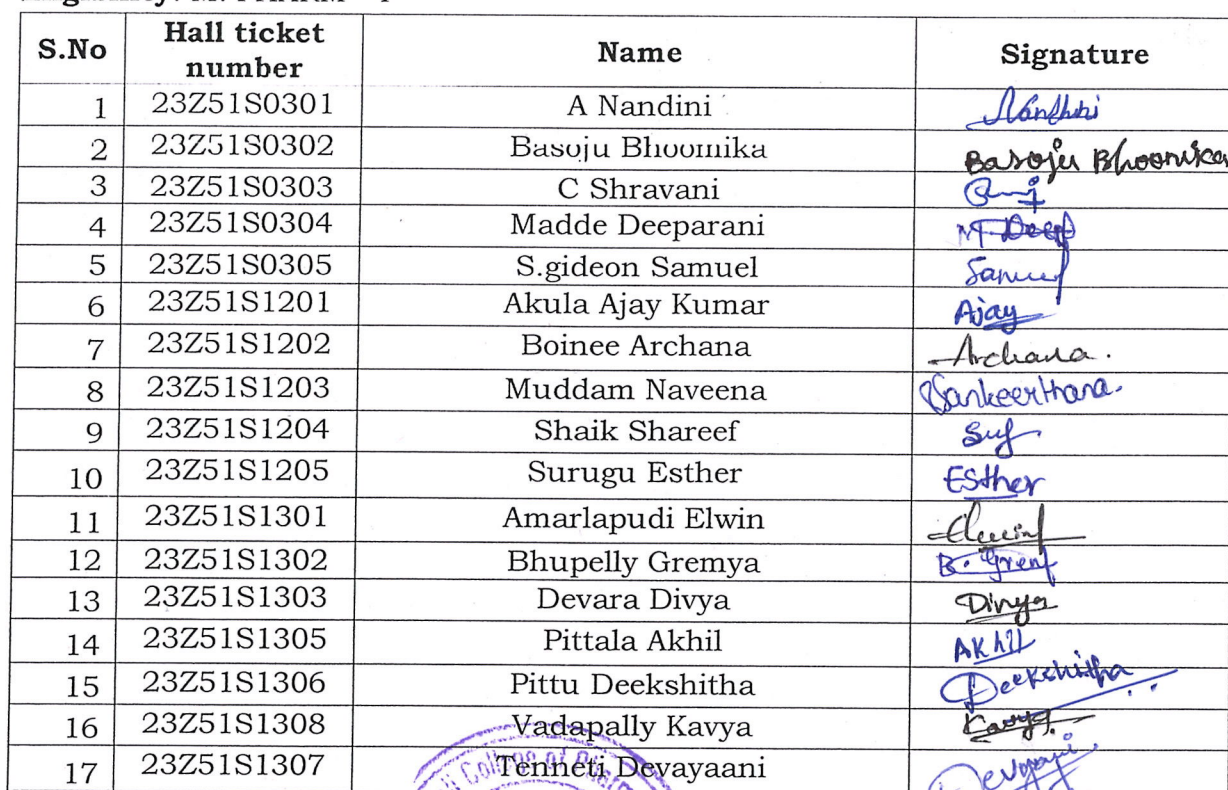 S.No Hall ticket number Name Signature
1 23Z51S0301 A Nandini Nandhini
2 23Z51S0302 Basoju Bhoomika Basoju Bhoomika
3 23Z51S0303 C Shravani
4 23Z51S0304 Madde Deeparani M Deep
5 23Z51S0305 S.gideon Samuel Samuel
6 23Z51S1201 Akula Ajay Kumar Ajay
7 23Z51S1202 Boinee Archana Archana.
8 23Z51S1203 Muddam Naveena Sankeerthana.
9 23Z51S1204 Shaik Shareef
10 23Z51S1205 Surugu Esther Esther
11 23Z51S1301 Amarlapudi Elwin Elwin
12 23Z51S1302 Bhupelly Gremya B. Grem
13 23Z51S1303 Devara Divya Divya
14 23Z51S1305 Pittala Akhil Akhil
15 23Z51S1306 Pittu Deekshitha Deekshitha
16 23Z51S1308 Vadapally Kavya Kavya
17 23Z51S1307 Tenneti Devayaani Devayani
College of